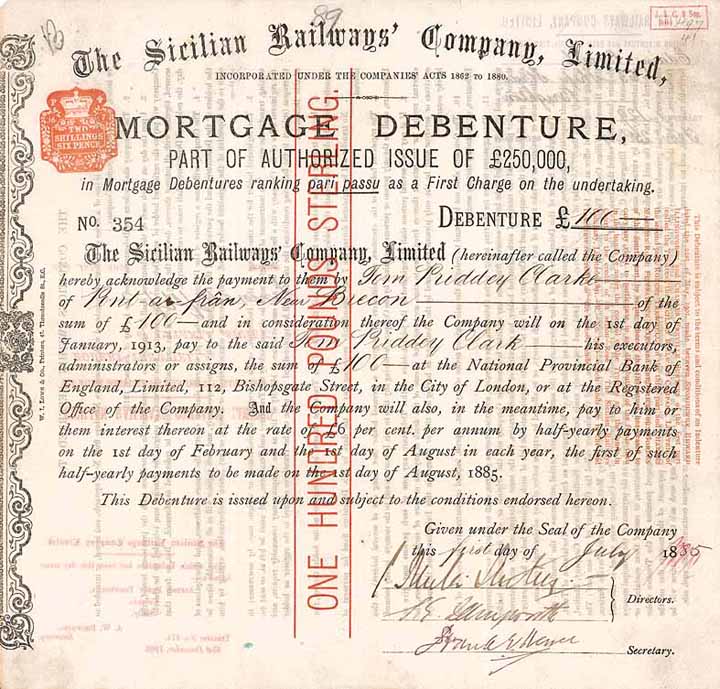 89
The Sicilian Railways' Company, Limited,
INCORPORATED UNDER THE COMPANIES' ACTS 1862 TO 1880.
TWO
SHILLINGS
SIX PENCE
MORTGAGE DEBENTURE,
PART OF AUTHORIZED ISSUE OF £250,000,
in Mortgage Debentures ranking pari passu as a First Charge on the undertaking.
No. 354 DEBENTURE £ 100
The Sicilian Railways' Company, Limited (hereinafter called the Company)
hereby acknowledge the payment to them by Tom Priddey Clarke
of Near Brecon of the
sum of £100 and in consideration thereof the Company will on the 1st day of
January, 1913, pay to the said Tom Priddey Clark his executors,
administrators or assigns, the sum of £100 at the National Provincial Bank of
England, Limited, 112, Bishopsgate Street, in the City of London, or at the Registered
Office of the Company. And the Company will also, in the meantime, pay to him or
them interest thereon at the rate of £6 per cent. per annum by half-yearly payments
on the 1st day of February and the 1st day of August in each year, the first of such
half-yearly payments to be made on the 1st day of August, 1885.
This Debenture is issued upon and subject to the conditions endorsed hereon.
Given under the Seal of the Company
this first day of July 1885
Directors.
Secretary.
ONE HUNDRED POUNDS STERLING.